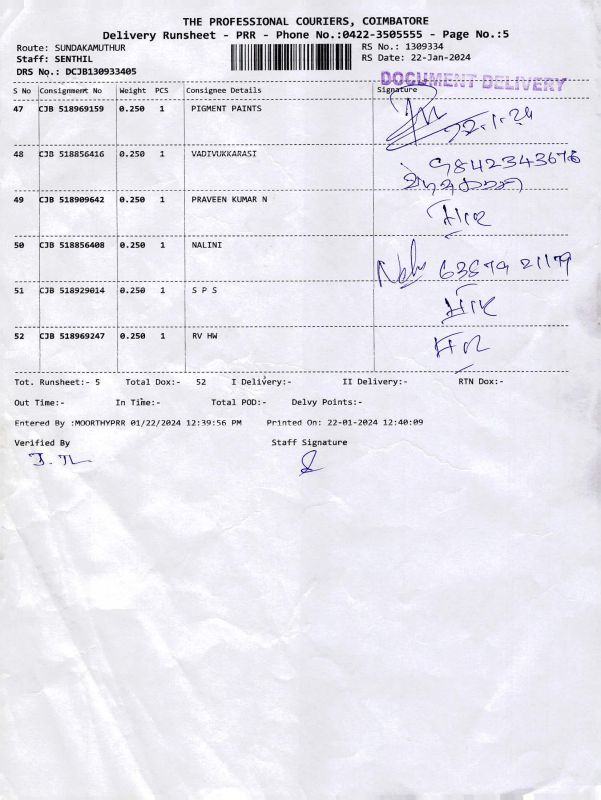 THE PROFESSIONAL COURIERS, COIMBATORE
Delivery Runsheet - PRR - Phone No.:0422-3505555 - Page No.:5
Route: SUNDAKAMUTHUR
Staff: SENTHIL
DRS No.: DCJB130933405
RS No.: 1309334
RS Date: 22-Jan-2024
DOCUMENT DELIVERY
S No Consignment No Weight PCS Consignee Details Signature
47 CJB 518969159 0.250 1 PIGMENT PAINTS 22.1.24
48 CJB 518856416 0.250 1 VADIVUKKARASI
49 CJB 518909642 0.250 1 PRAVEEN KUMAR N
50 CJB 518856408 0.250 1 NALINI 63879 21179
51 CJB 518929014 0.250 1 S P S
52 CJB 518969247 0.250 1 RV HW
Tot. Runsheet:- 5 Total Dox:- 52 I Delivery:- II Delivery:- RTN Dox:-
Out Time:- In Time:- Total POD:- Delvy Points:-
Entered By :MOORTHYPRR 01/22/2024 12:39:56 PM Printed On: 22-01-2024 12:40:09
Verified By Staff Signature